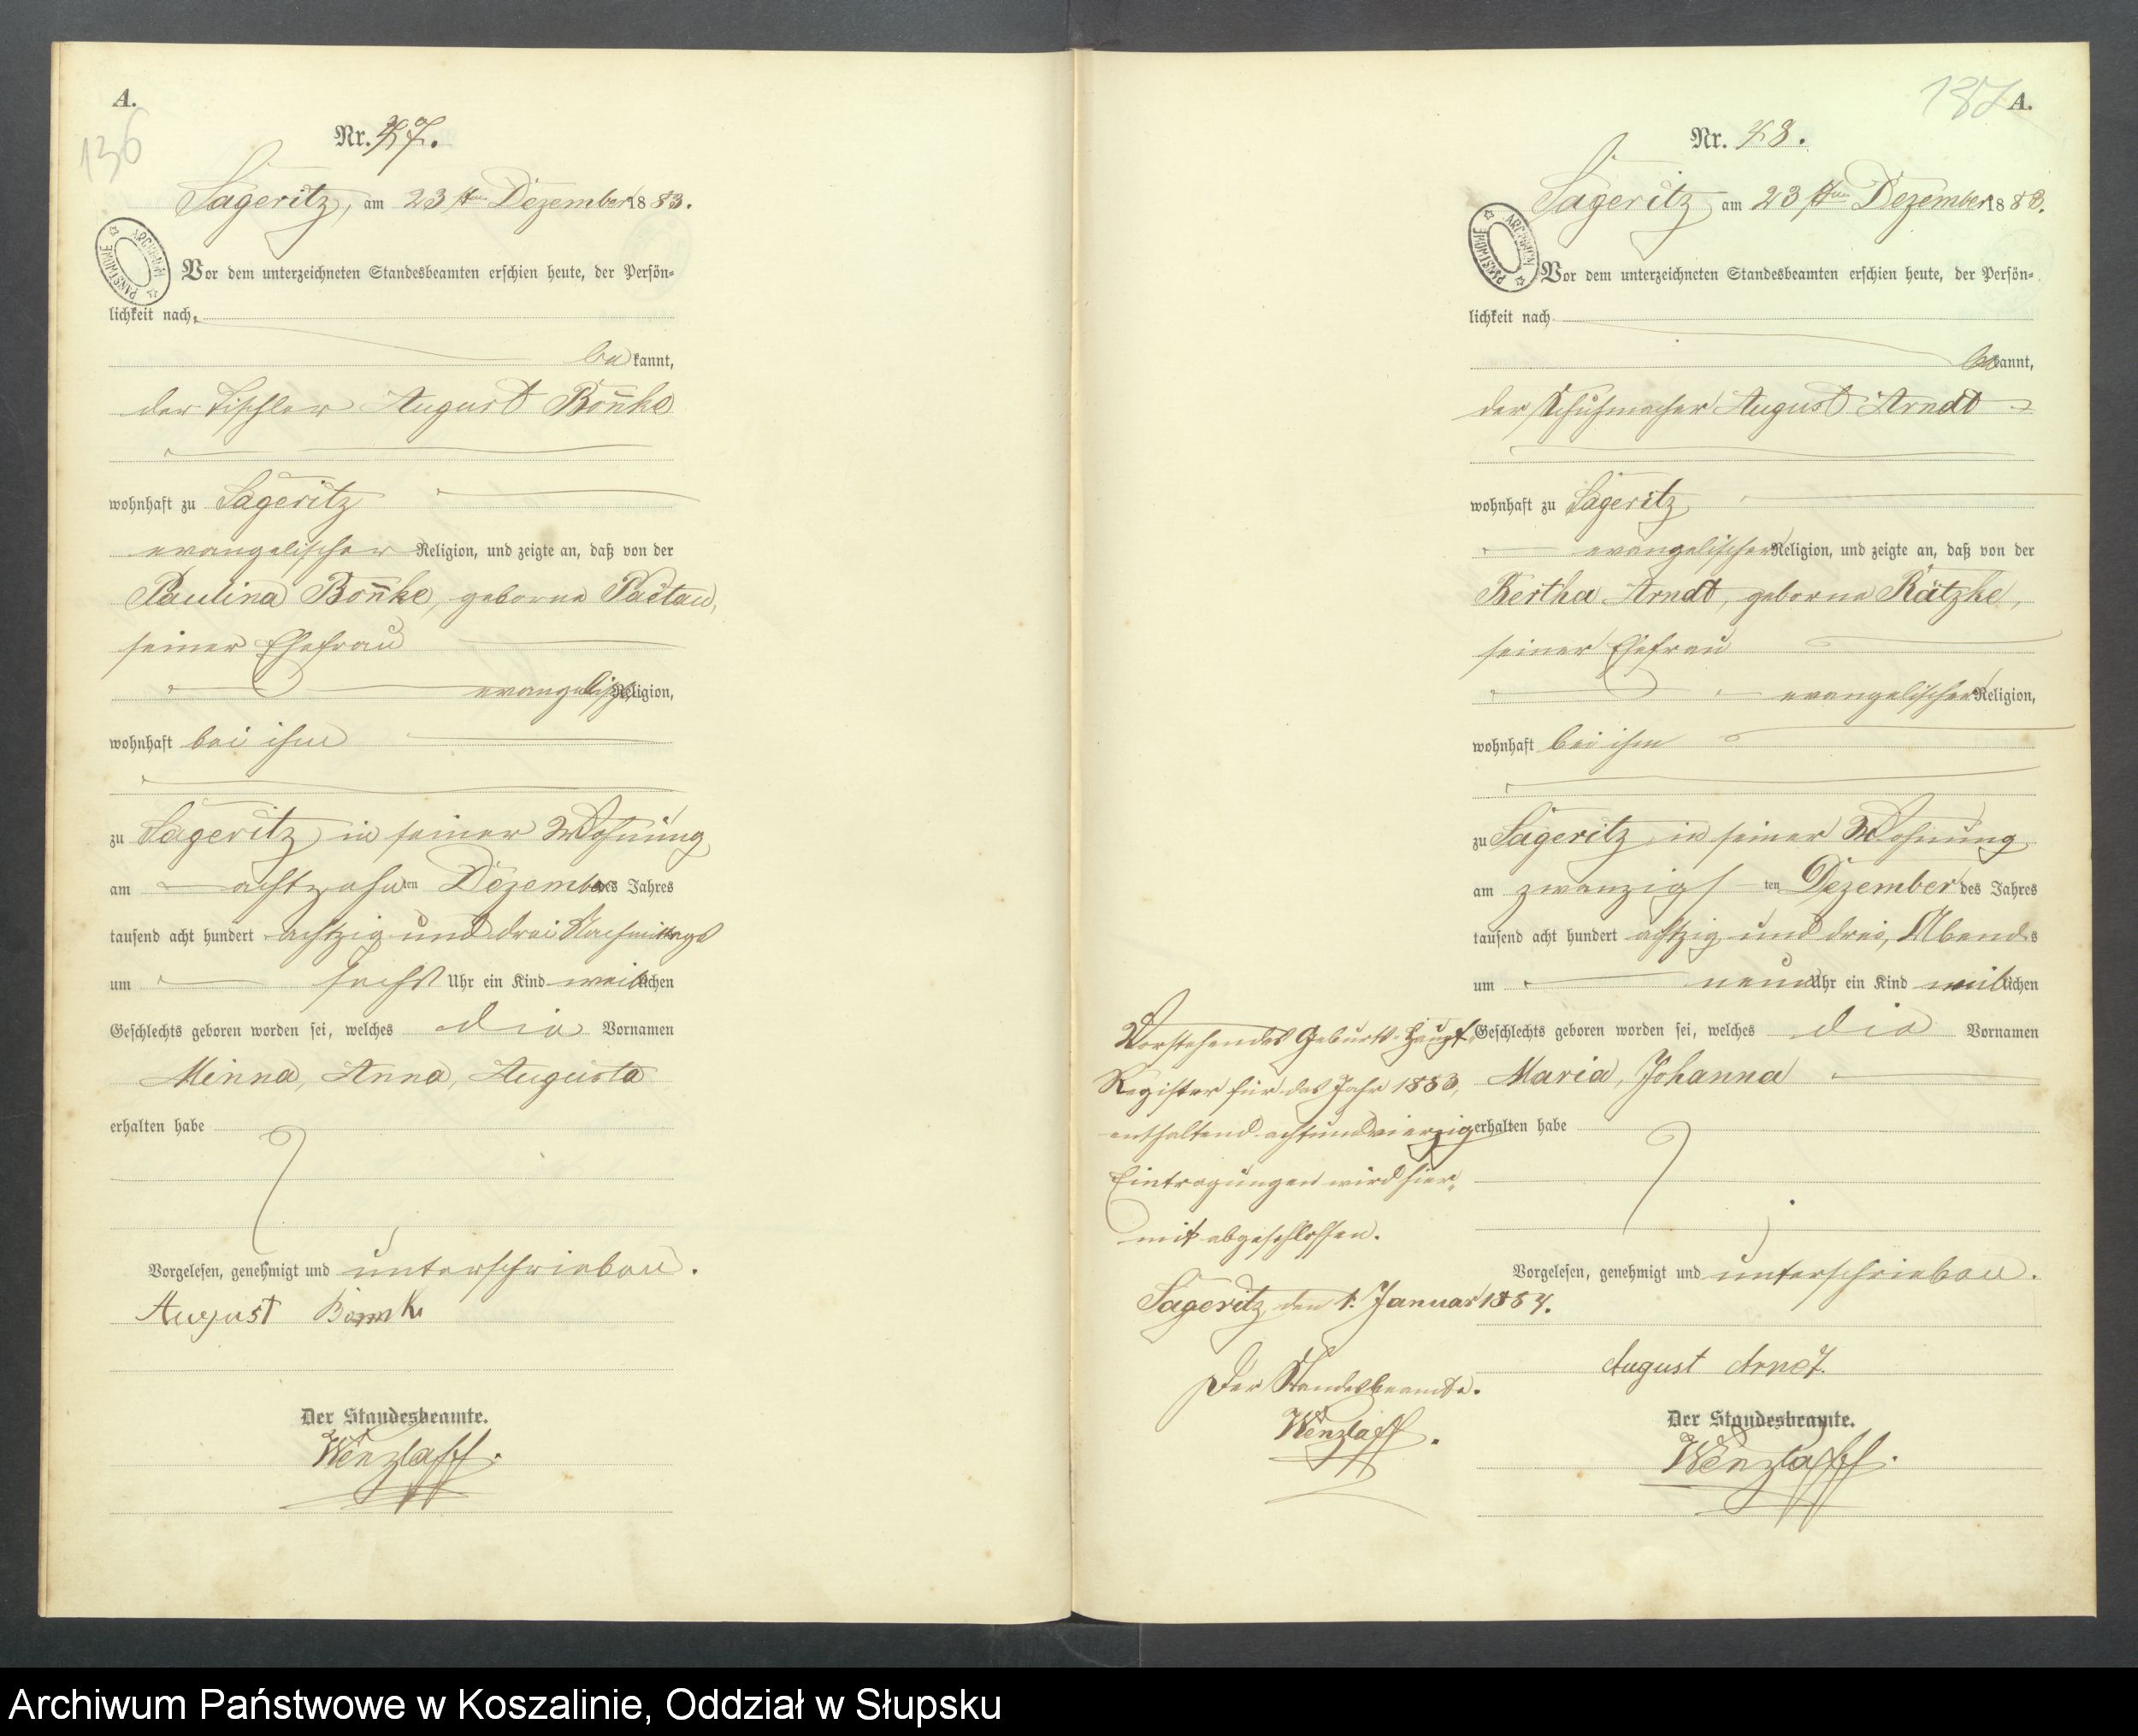 A.
136
Nr. 47.
Sageritz, am 23ten Dezember 1883.
ARCHIWUM PAŃSTWOWE
Vor dem unterzeichneten Standesbeamten erschien heute, der Persön-
lichkeit nach
be kannt,
der Tischler August Bon̄ke
wohnhaft zu Sageritz
evangelischer Religion, und zeigte an, daß von der
Paulina Bon̄ke, geborne
seiner Ehefrau
evangelischer Religion,
wohnhaft bei ihm
zu Sageritz in seiner Wohnung
am achtzehn ten Dezember des Jahres
tausend acht hundert achtzig und drei Nachmittags
um sechs Uhr ein Kind weiblichen
Geschlechts geboren worden sei, welches die Vornamen
Minna, Anna, Augusta
erhalten habe
Vorgelesen, genehmigt und unterschrieben.
August
Der Standesbeamte.
Wenzlaff.
137 A.
Nr. 48.
Sageritz, am 23ten Dezember 1883.
ARCHIWUM PAŃSTWOWE
Vor dem unterzeichneten Standesbeamten erschien heute, der Persön-
lichkeit nach
bekannt,
der Schuhmacher August Arndt
wohnhaft zu Sageritz
evangelischer Religion, und zeigte an, daß von der
Bertha Arndt, geborne Rätzke,
seiner Ehefrau
evangelischer Religion,
wohnhaft bei ihm
zu Sageritz in seiner Wohnung
am zwanzigs ten Dezember des Jahres
tausend acht hundert achtzig und drei, Abends
um neun Uhr ein Kind weiblichen
Geschlechts geboren worden sei, welches die Vornamen
Maria, Johanna
erhalten habe
Vorgelesen, genehmigt und unterschrieben.
August Arndt.
Der Standesbeamte.
Wenzlaff.
Vorstehendes Geburts-Haupt-
Register für das Jahr 1883,
enthaltend achtundvierzig
Eintragungen wird hier-
mit abgeschlossen.
Sageritz, den 1. Januar 1884.
Der Standesbeamte.
Wenzlaff.
Archiwum Państwowe w Koszalinie, Oddział w Słupsku